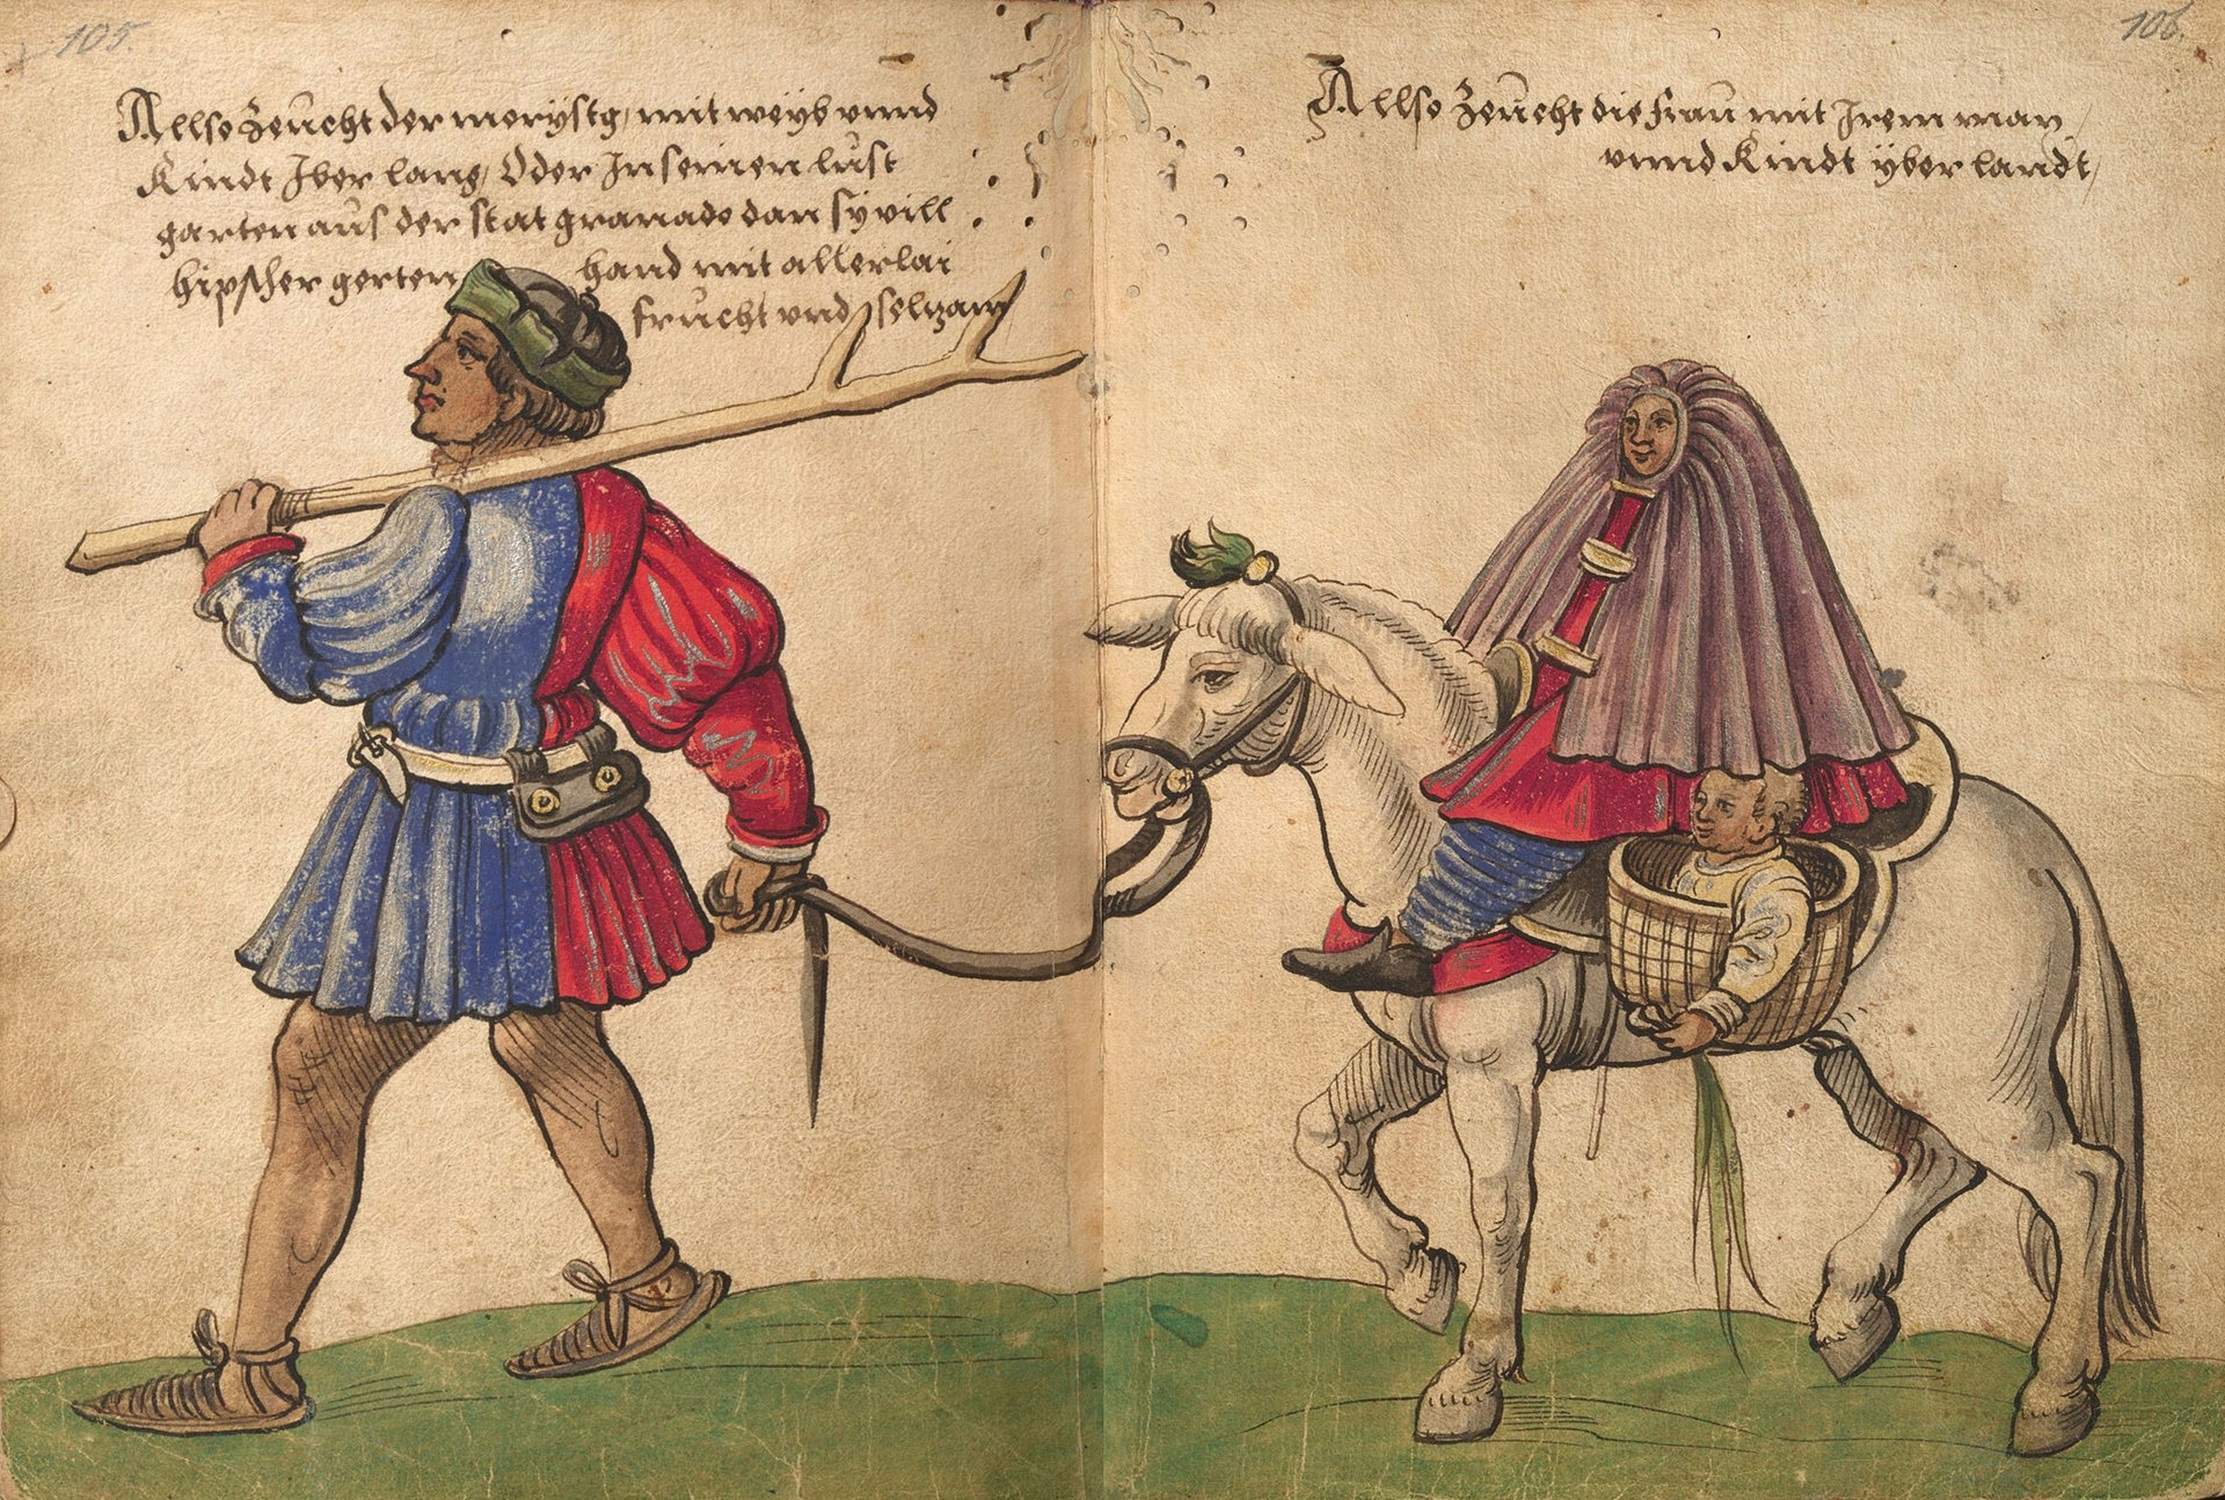 105.
Allso zeücht der morÿstg, mit weÿb vnnd
Kindt Iber lang, Oder In seinen lust
garten aüs der stat granado dan sÿ vill
hipscher gerten hand mit allerlai
frücht vnd selzam
106.
Allso zeücht die fraü mit Irem man
vnnd Kindt ÿber landt,